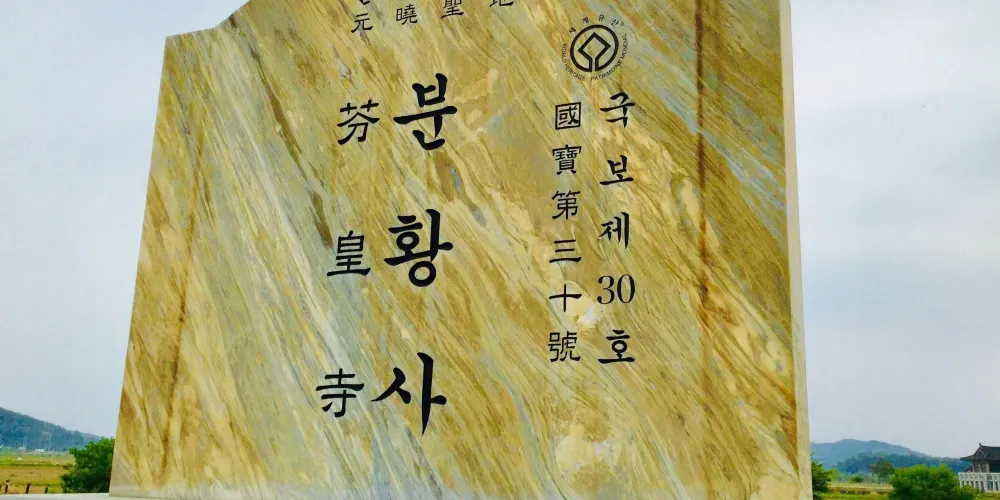 元曉聖地
세계유산
WORLD HERITAGE PATRIMOINE MONDIAL
국보제30호
國寶第三十號
분황사
芬皇寺